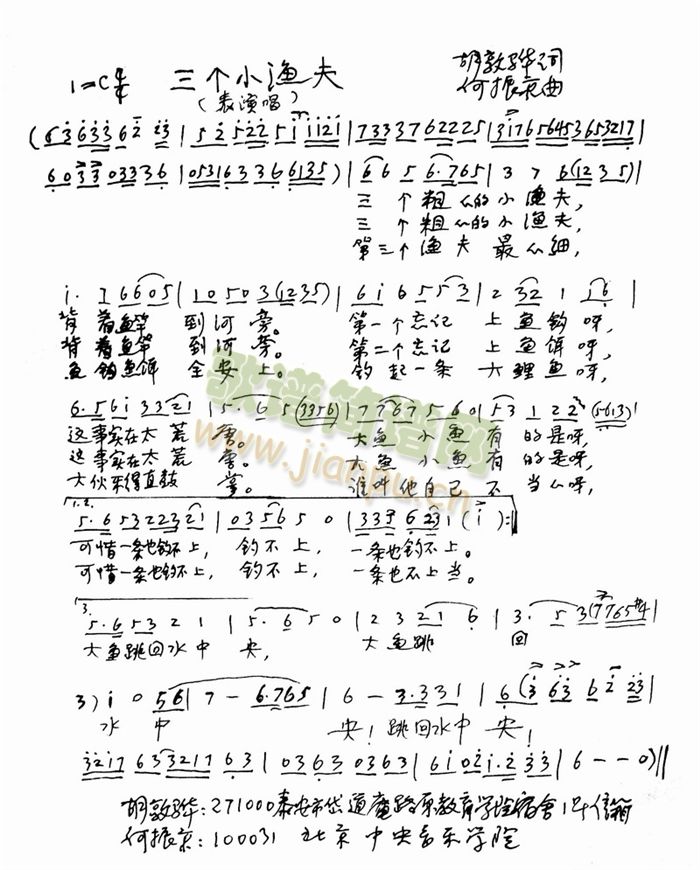 1=C 4/4 三个小渔夫
（表演唱）
胡敦骅词
何振京曲
(6 3 6 3 3 6 2 2 3 | 5 2 5 2 2 5 i i i 2 i | 7 3 3 3 7 6 2 2 2 5 | 3 i 7 6 5 6 4 5 3 6 5 3 2 1 7 |
6 0 3 3 0 3 3 3 6 | 0 5 3 1 6 3 3 6 6 1 3 5) | 6 6 5 6.7 6 5 | 3 7 6 (1 2 3 5) |
三个粗心的小渔夫，
三个粗心的小渔夫，
第三个渔夫最心细，
i. 7 6 6 0 5 | 1 0 5 0 3 (1 2 3 5) | 6 i 6 5 5 3 | 2 3 2 1 1 6 |
背着鱼竿到河旁。 第一个忘记上鱼钩呀，
背着鱼竿到河旁。 第二个忘记上鱼饵呀，
鱼钩鱼饵全安上。 钓起一条大鲤鱼呀，
6. 5 6 i 3 3 2 1 | 5. 6 5 (3 3 5 6) | 7 7 6 7 5 6 0 | 5 3 1 2 2 (5 6 1 3) |
这事实在太荒唐。 大鱼小鱼有的是呀，
这事实在太荒唐。 大鱼小鱼有的是呀，
大伙来得直鼓掌。 谁叫他自己不当心呀，
1.2.
5. 6 5 3 2 2 3 2 1 | 0 3 5 6 5 0 | 3 3 5 6 2 3 1 (i) :||
可惜一条也钓不上，钓不上，一条也钓不上。
可惜一条也钓不上，钓不上，一条也不上当。
3.
5. 6 5 3 2 1 | 5. 6 5 0 | 2 3 2 1 6 | 3. 5 3 (7 7 6 5 #4 |
大鱼跳回水中央， 大鱼跳回
3) i 0 5 6 | 7 - 6.7 6 5 | 6 - 3.3 3 1 | 6 (3 6 3 6 2 2 3 |
水中央！跳回水中央！
3 2 1 7 6 3 3 2 1 7 6 3 | 0 3 6 3 0 3 6 3 | 6 i 0 2 i. 2 3 3 | 6 - - 0) ||
胡敦骅：271000泰安市岱道庵路原教育学院宿舍1#信箱
何振京：100031 北京中央音乐学院
歌谱简谱网
www.jianpu.cn